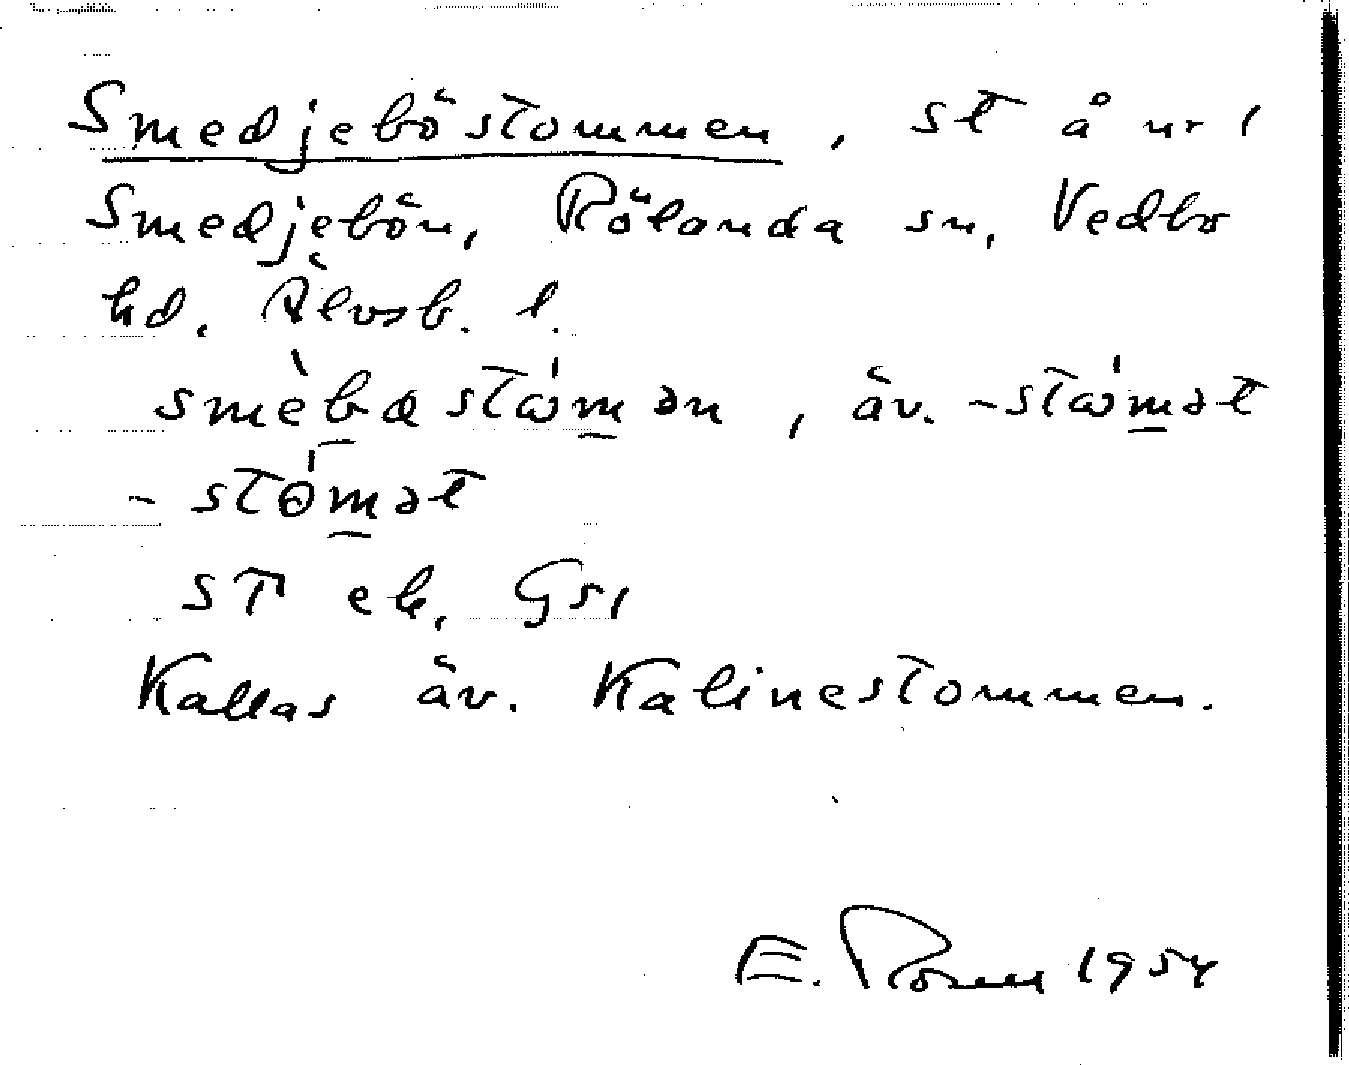 Smedjeböstommen, st å nr 1
Smedjebön, Rölanda sn, Vedbo
hd. Älvsb. l.
smèbastώmən, äv. -stώmət
- stɵ́mət
ST ek, Gs1
Kallas äv. Kalinestommen.
E. Rosell 1954